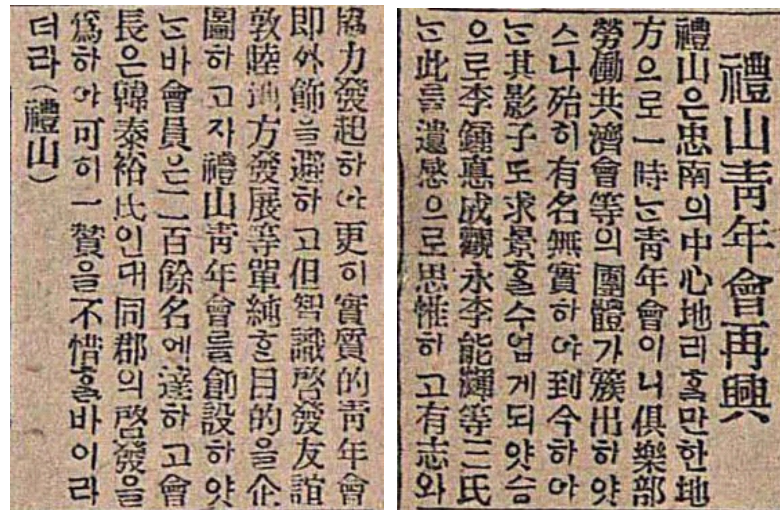 禮山靑年會再興
禮山은忠南의中心地리ᄒᆞᆯ만한地
方으로一時ᄂᆞᆫ靑年會이니俱樂部
勞働共濟會等의團體가簇出하얏
스나殆히有名無實하야到今하야
ᄂᆞᆫ其影子도求景ᄒᆞᆯ수업게되얏슴
으로李鍾悳成觀永李能輝等三氏
ᄂᆞᆫ此를遺憾으로思惟하고有志와
協力發起하야更히實質的靑年會
即外飾을避하고但智識啓發友誼
敦睦地方發展等單純ᄒᆞᆫ目的을企
圖하고자禮山靑年會를創設하얏
ᄂᆞᆫ바會員은二百餘名에達하고會
長은韓泰裕氏인대同郡의啓發을
爲하야可히一贊을不惜ᄒᆞᆯ바이라
더라(禮山)